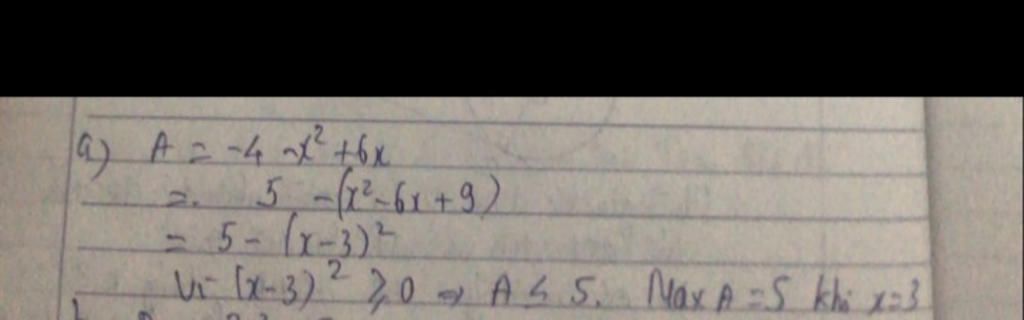 a) A = -4 -x² +6x
= 5 -(x²-6x+9)
= 5 - (x-3)²
Vì (x-3)² ⩾ 0 => A ≤ 5. Max A = 5 khi x=3